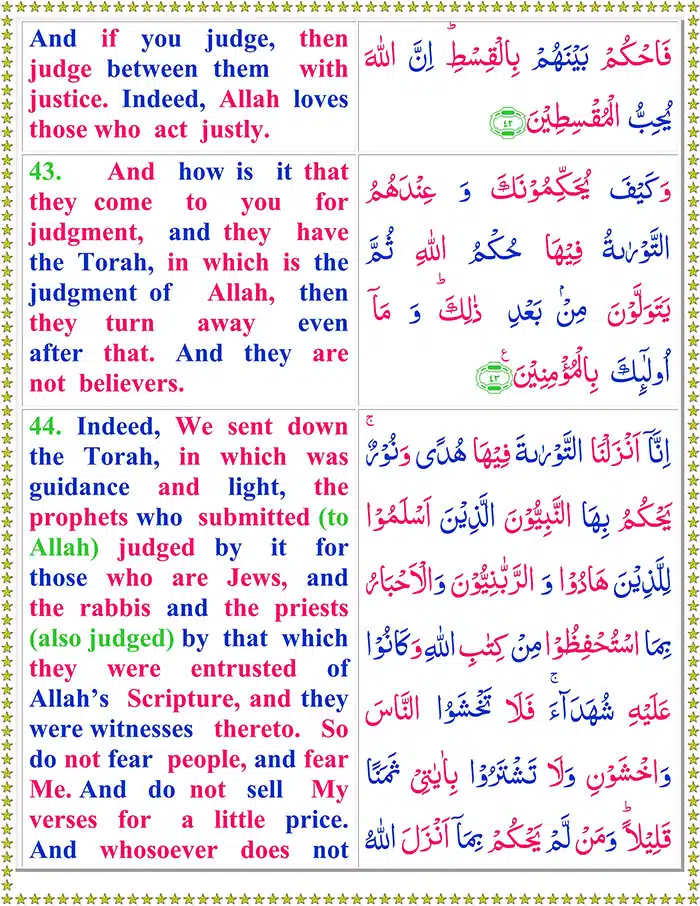 And if you judge, then
judge between them with
justice. Indeed, Allah loves
those who act justly.
فَاحْكُمْ بَيْنَهُمْ بِالْقِسْطِ ؕ اِنَّ اللّٰهَ
يُحِبُّ الْمُقْسِطِيْنَ ﴿۴۲﴾
43. And how is it that
they come to you for
judgment, and they have
the Torah, in which is the
judgment of Allah, then
they turn away even
after that. And they are
not believers.
وَكَيْفَ يُحَكِّمُوْنَكَ وَ عِنْدَهُمُ
التَّوْرٰىةُ فِيْهَا حُكْمُ اللّٰهِ ثُمَّ
يَتَوَلَّوْنَ مِنْۢ بَعْدِ ذٰلِكَ ؕ وَ مَاۤ
اُولٰٓئِكَ بِالْمُؤْمِنِيْنَ ﴿۴۳﴾ ع
44. Indeed, We sent down
the Torah, in which was
guidance and light, the
prophets who submitted (to
Allah) judged by it for
those who are Jews, and
the rabbis and the priests
(also judged) by that which
they were entrusted of
Allah’s Scripture, and they
were witnesses thereto. So
do not fear people, and fear
Me. And do not sell My
verses for a little price.
And whosoever does not
اِنَّاۤ اَنْزَلْنَا التَّوْرٰىةَ فِيْهَا هُدًى وَنُوْرٌ ۚ
يَحْكُمُ بِهَا النَّبِيُّوْنَ الَّذِيْنَ اَسْلَمُوْا
لِلَّذِيْنَ هَادُوْا وَ الرَّبّٰنِيُّوْنَ وَالْاَحْبَارُ
بِمَا اسْتُحْفِظُوْا مِنْ كِتٰبِ اللّٰهِ وَكَانُوْا
عَلَيْهِ شُهَدَآءَ ۚ فَلَا تَخْشَوُا النَّاسَ
وَاخْشَوْنِ وَلَا تَشْتَرُوْا بِاٰيٰتِيْ ثَمَنًا
قَلِيْلًا ؕ وَمَنْ لَّمْ يَحْكُمْ بِمَاۤ اَنْزَلَ اللّٰهُ